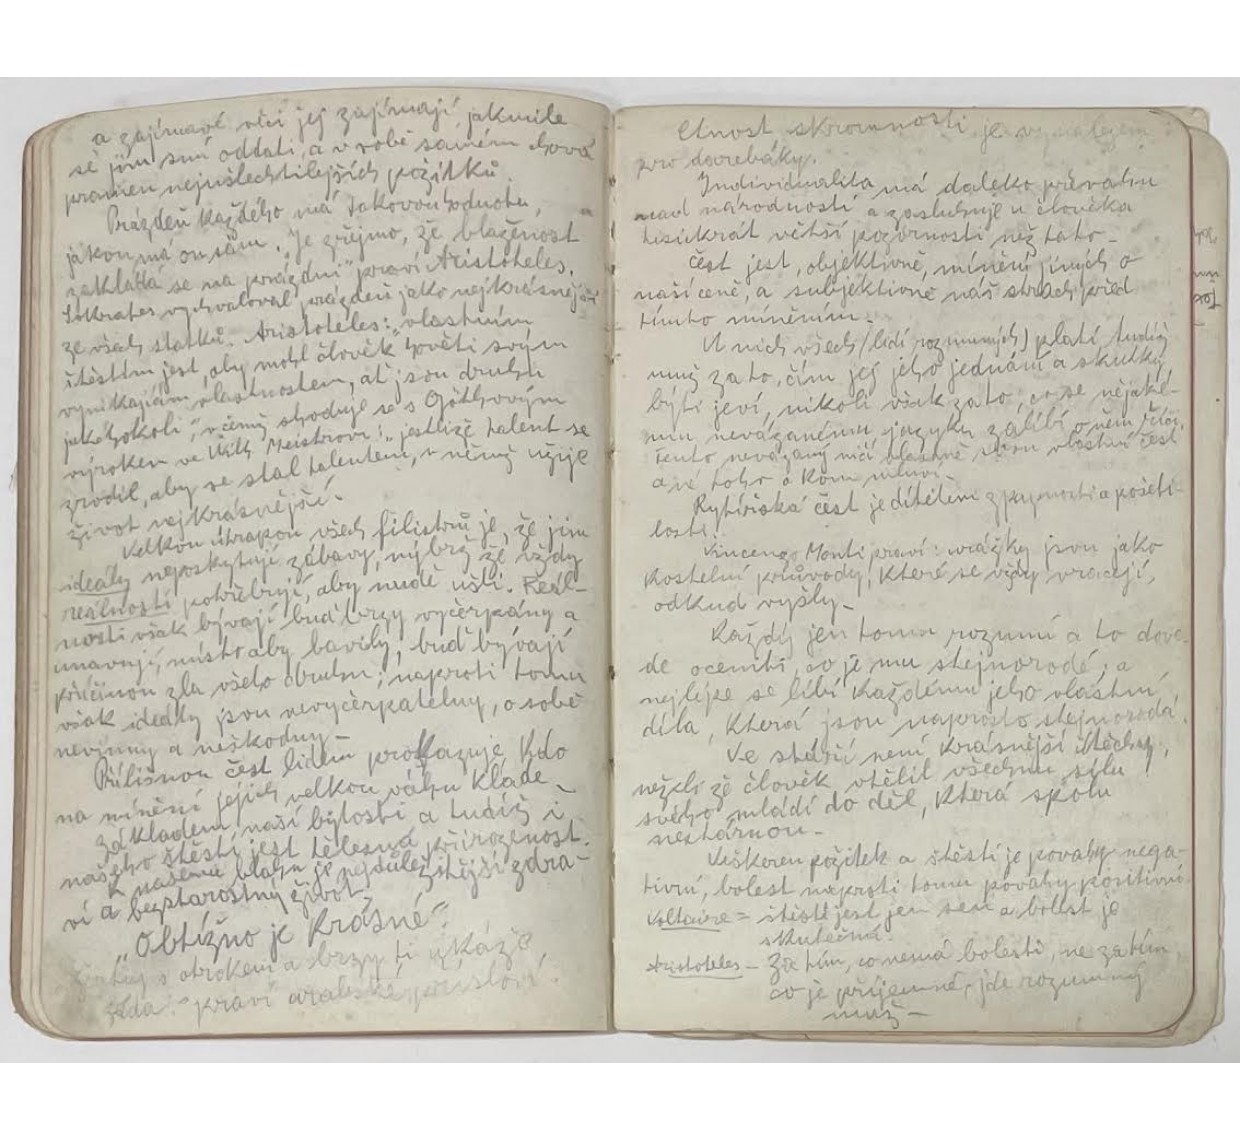 a zajímavé věci jej zajímají jakmile
se jim smí oddati, a v sobě samém chová
pramen nejušlechtilejších požitků.
Prázdeň každého má takovou hodnotu,
jakou má on sám. "Je zřejmo, že blaženost
zakládá se na prázdni" praví Aristoteles.
Sokrates vychvaloval prázdeň jako nejkrásnější
ze všech statků. Aristoteles: "vlastním
štěstím jest, aby mohl člověk hověti svým
vynikajícím vlastnostem, ať jsou druhu
jakéhokoli", v čemž shoduje se s Göthovým
výrokem ve Vilh. Meistrovi: "jestliže talent se
zrodil, aby se stal talentem, v němž užije
život nejkrásnější-
Velkou útrapou všech filistrů je, že jim
ideály neposkytují zábavy, nýbrž že vždy
realností potřebují, aby nudě ušli. Reál-
nosti však bývají buď brzy vyčerpány a
unavují, místo aby bavily; buď bývají
příčinou zla všeho druhu; naproti tomu
však ideály jsou nevyčerpatelny, o sobě
nevinny a neškodny-
Přílišnou čest lidem prokazuje kdo
na mínění jejich velkou váhu klade-
Základem naší bytosti a tudíž i
našeho štěstí jest tělesná přirozenost.
K našemu blahu je nejdůležitější zdra-
ví a bezstarostný život.
"Obtížno je krásné"
s otrokem a brzy ti ukáže
záda!" praví arabské přísloví.
Ctnost skromnosti je vynálezem
pro darebáky.
Individualita má daleko převahu
nad národností a zasluhuje u člověka
tisíckrát větší pozornosti než tato-
Čest jest, objektivně, mínění jiných o
naší ceně, a subjektivně náš strach před
tímto míněním.
U nich všech (lidí rozumných) platí tudíž
muž za to, čím jej jeho jednání a skutky
býti jeví, nikoli však za to, co se nějaké-
mu nevázanému jazyku zalíbí o něm říci.
Tento nevázaný ničí vlastně svou vlastní čest
a ne toho o kom mluví
Rytířská čest je dítětem zpupnosti a pošeti-
losti.
Vincenzo Monti praví: urážky jsou jako
kostelní průvody, které se vždy vracejí,
odkud vyšly-
Každý jen tomu rozumí a to dove-
de oceniti, co je mu stejnorodé; a
nejlépe se líbí každému jeho vlastní
díla, která jsou naprosto stejnorodá.
Ve stáří není krásnější útěchy,
nežli že člověk vtělil všechnu sílu
svého mládí do děl, která spolu
nestárnou-
Veškeren požitek a štěstí je povahy nega-
tivní, bolest naproti tomu povahy positivní.
Voltaire = štěstí jest jen sen a bolest je
skutečná.
Aristoteles - Za tím, co nemá bolesti, ne za tím,
co je příjemné, jde rozumný
muž-